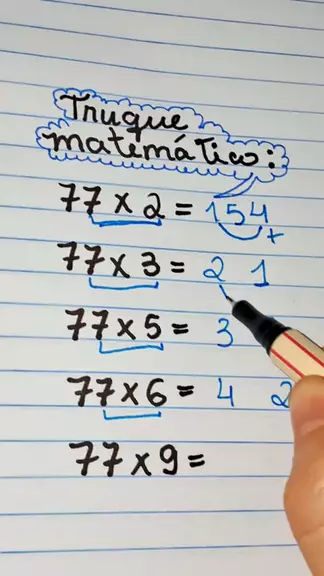 Truque
matemático:
77 x 2 = 154
+
77 x 3 = 2 1
77 x 5 = 3
77 x 6 = 4 2
77 x 9 =